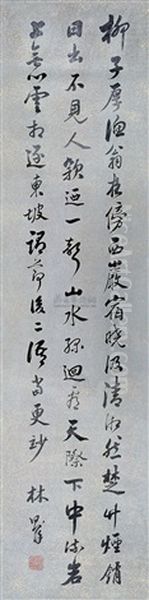 柳子厚漁翁夜傍西巖宿曉汲清湘然楚竹煙銷
日出不見人欵迺一聲山水綠迴看天際下中流岩
上無心雲相逐東坡謂節後二語當更妙 林